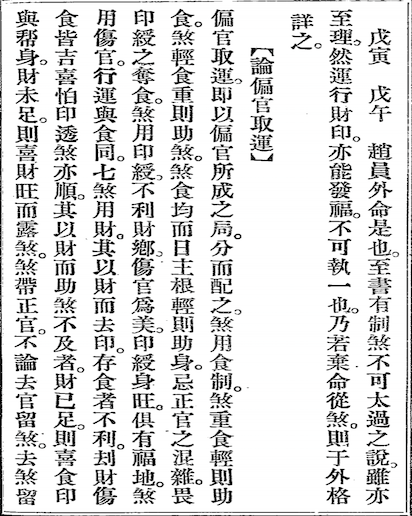 戊寅　戊午　趙員外命是也。至書有制煞不可太過之說。雖亦
至理。然運行財印。亦能發福。不可執一也。乃若棄命從煞。則于外格
詳之。
【論偏官取運】
偏官取運。即以偏官所成之局。分而配之。煞用食制。煞重食輕則助
食。煞輕食重則助煞。煞食均而日主根輕則助身。忌正官之混雜。畏
印綬之奪食。煞用印綬。不利財鄉。傷官爲美。印綬身旺。俱有福地。煞
用傷官。行運與食同。七煞用財。其以財而去印。存食者不利刦財。傷
食皆吉。喜怕印透煞亦順。其以財而助煞不及者。財已足。則喜食印
與帮身。財未足。則喜財旺而露煞。煞帶正官。不論去官留煞。去煞留